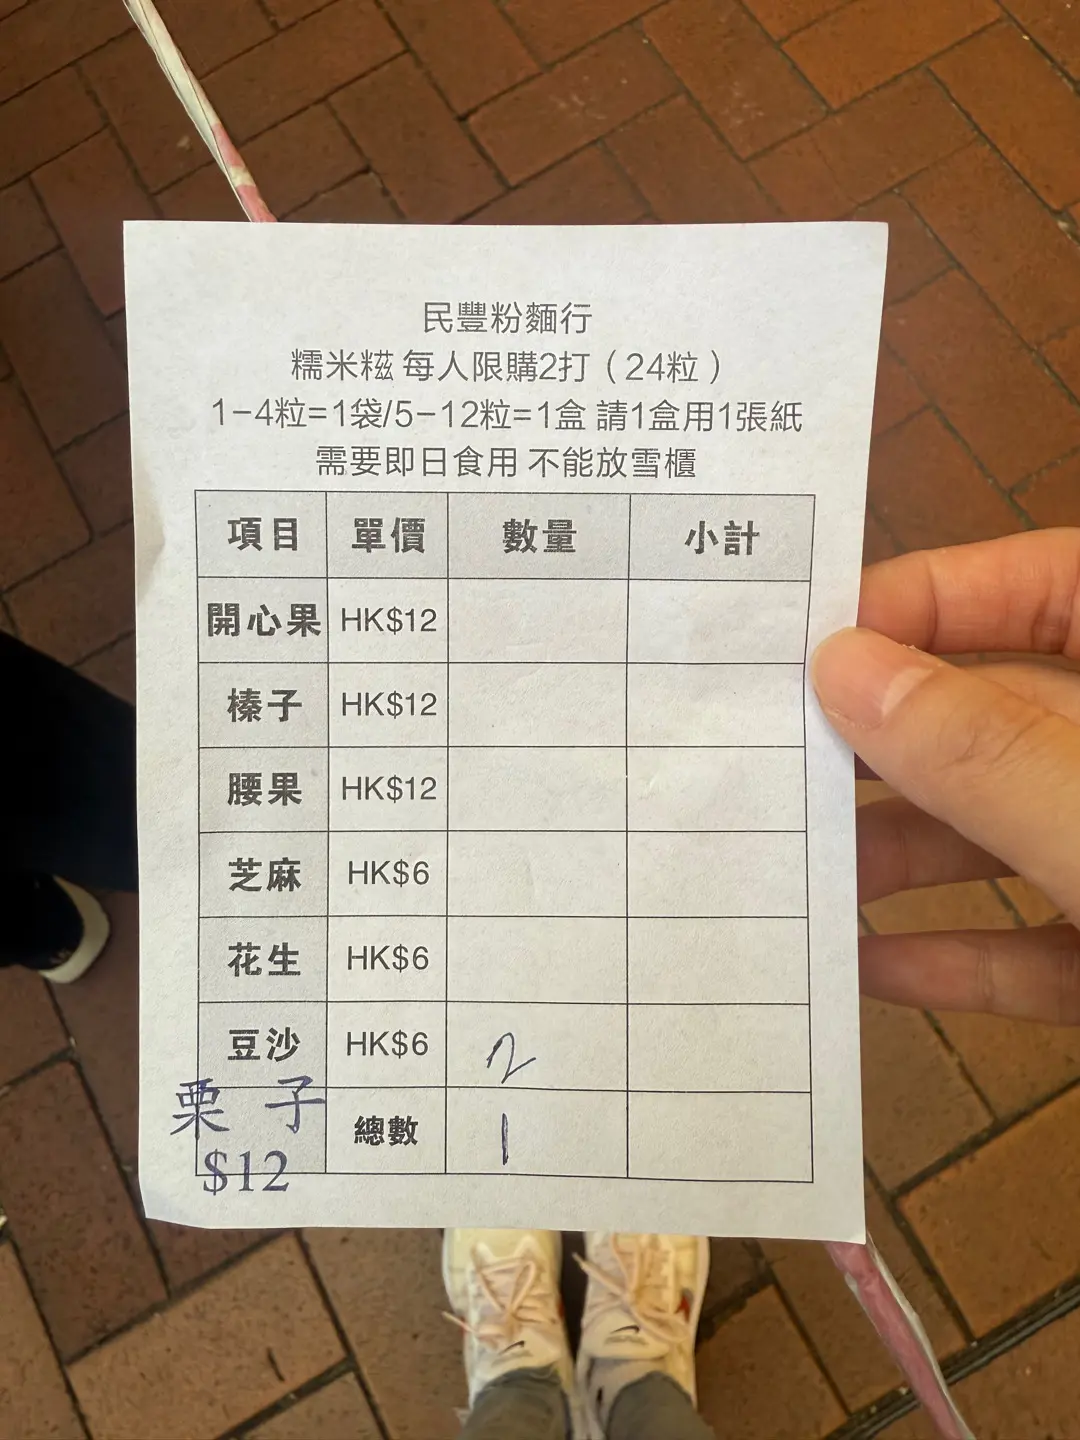 民豐粉麵行
糯米糍 每人限購2打（24粒）
1-4粒=1袋/5-12粒=1盒 請1盒用1張紙
需要即日食用 不能放雪櫃
項目 單價 數量 小計
開心果 HK$12
榛子 HK$12
腰果 HK$12
芝麻 HK$6
花生 HK$6
豆沙 HK$6 2
栗子 總數 1
$12